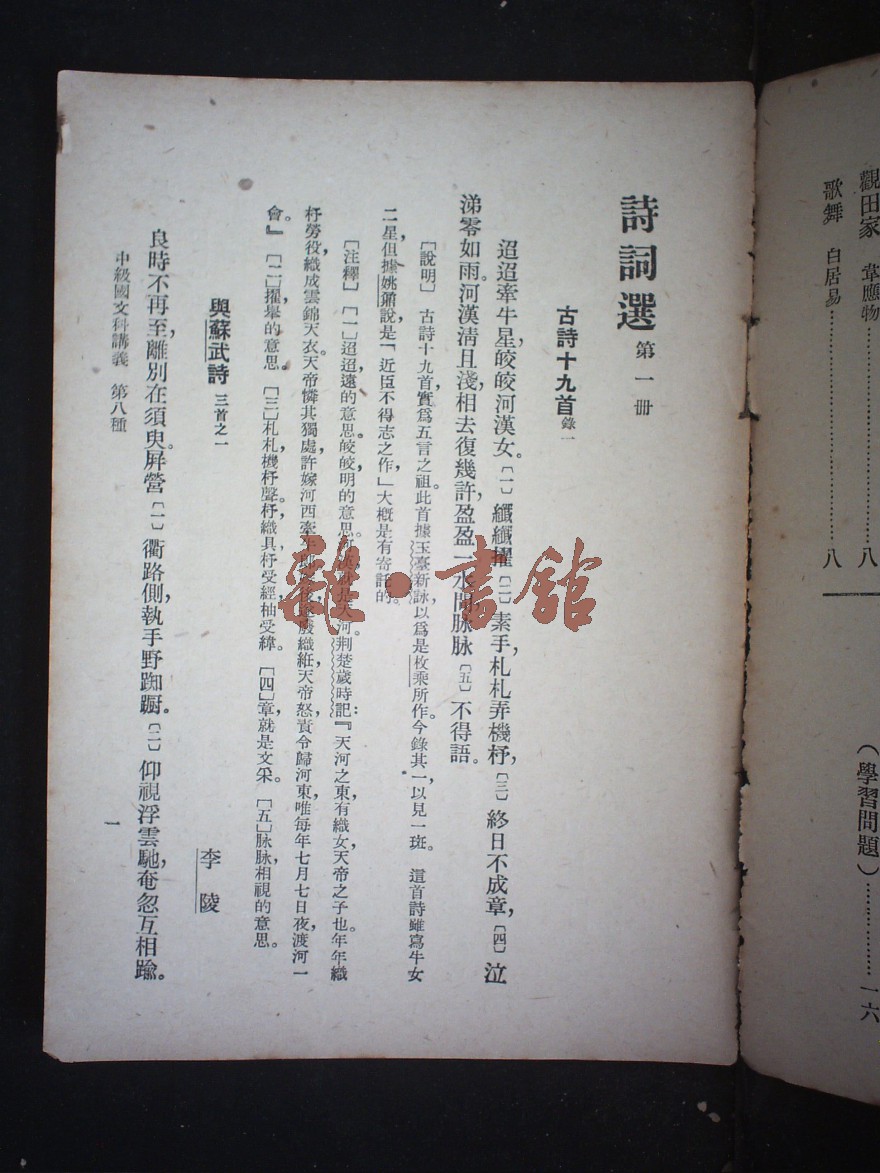 觀田家　韋應物………………八
歌舞　白居易………………八
（學習問題）………………一六
詩詞選 第一冊
古詩十九首 錄一
迢迢牽牛星，皎皎河漢女。〔一〕纖纖擢〔二〕素手，札札弄機杼，〔三〕終日不成章，〔四〕泣
涕零如雨。河漢淸且淺，相去復幾許，盈盈一水間，脉脉〔五〕不得語。
〔說明〕古詩十九首，實爲五言之祖。此首據玉臺新詠以爲是枚乘所作。今錄其一，以見一斑。　這首詩雖寫牛女
二星，但據姚鼐說，是「近臣不得志之作，」大概是有寄託的。
〔注釋〕〔一〕迢迢，遠的意思。皎皎，明的意思。河漢，就是天河。荆楚歲時記：『天河之東，有織女，天帝之子也。年年織
杼勞役，織成雲錦天衣。天帝憐其獨處，許嫁河西牽牛郞，嫁後遂廢織絍，天帝怒，責令歸河東，唯每年七月七日夜，渡河一
會。』〔二〕擢，舉的意思。〔三〕札札，機杼聲。杼，織具，杼受經，柚受緯。〔四〕章，就是文采。〔五〕脉脉，相視的意思。
與蘇武詩 三首之一
李陵
良時不再至，離別在須臾。屛營〔一〕衢路側，執手野踟蹰。〔二〕仰視浮雲馳，奄忽互相踰。
中級國文科講義　第八種
一
雜·書館